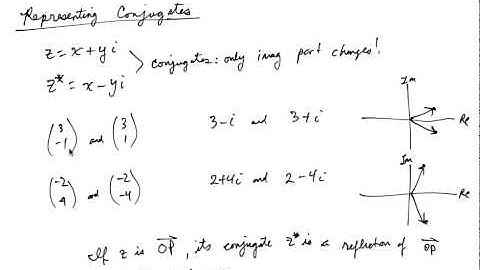 Representing Conjugates
z = x + yi
z* = x - yi
conjugates: only imag part changes!
(3 -1) and (3 1) 3-i and 3+i
Im
Re
(-2 4) and (-2 -4) 2+4i and 2-4i
Im
Re
If z is OP, its conjugate z* is a reflection of OP